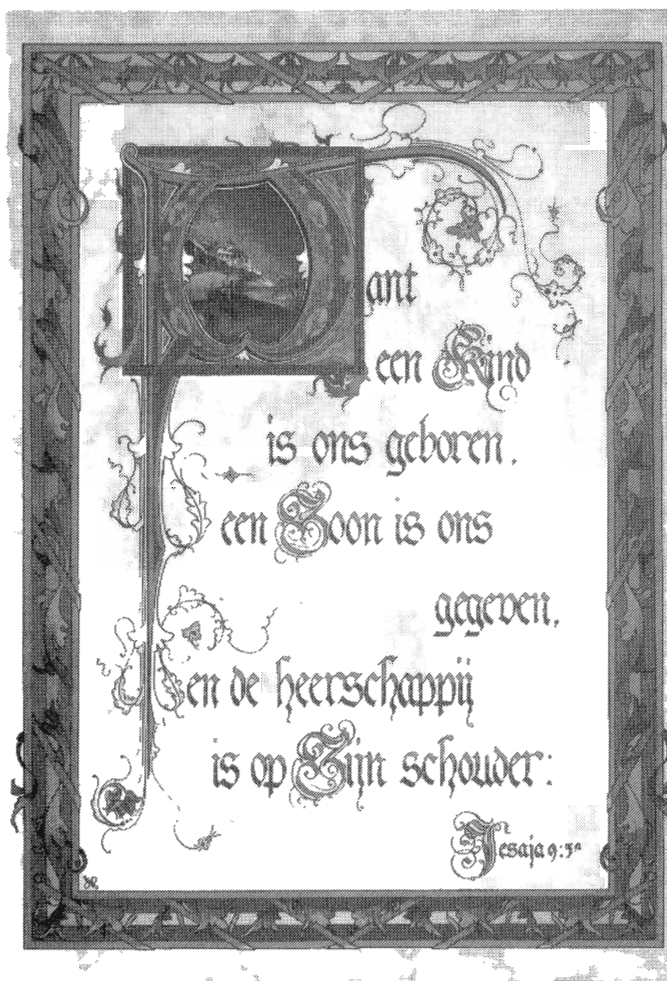 Want
een Kind
is ons geboren,
een Zoon is ons
gegeven,
en de heerschappij
is op Zijn schouder:
Jesaja 9:5a